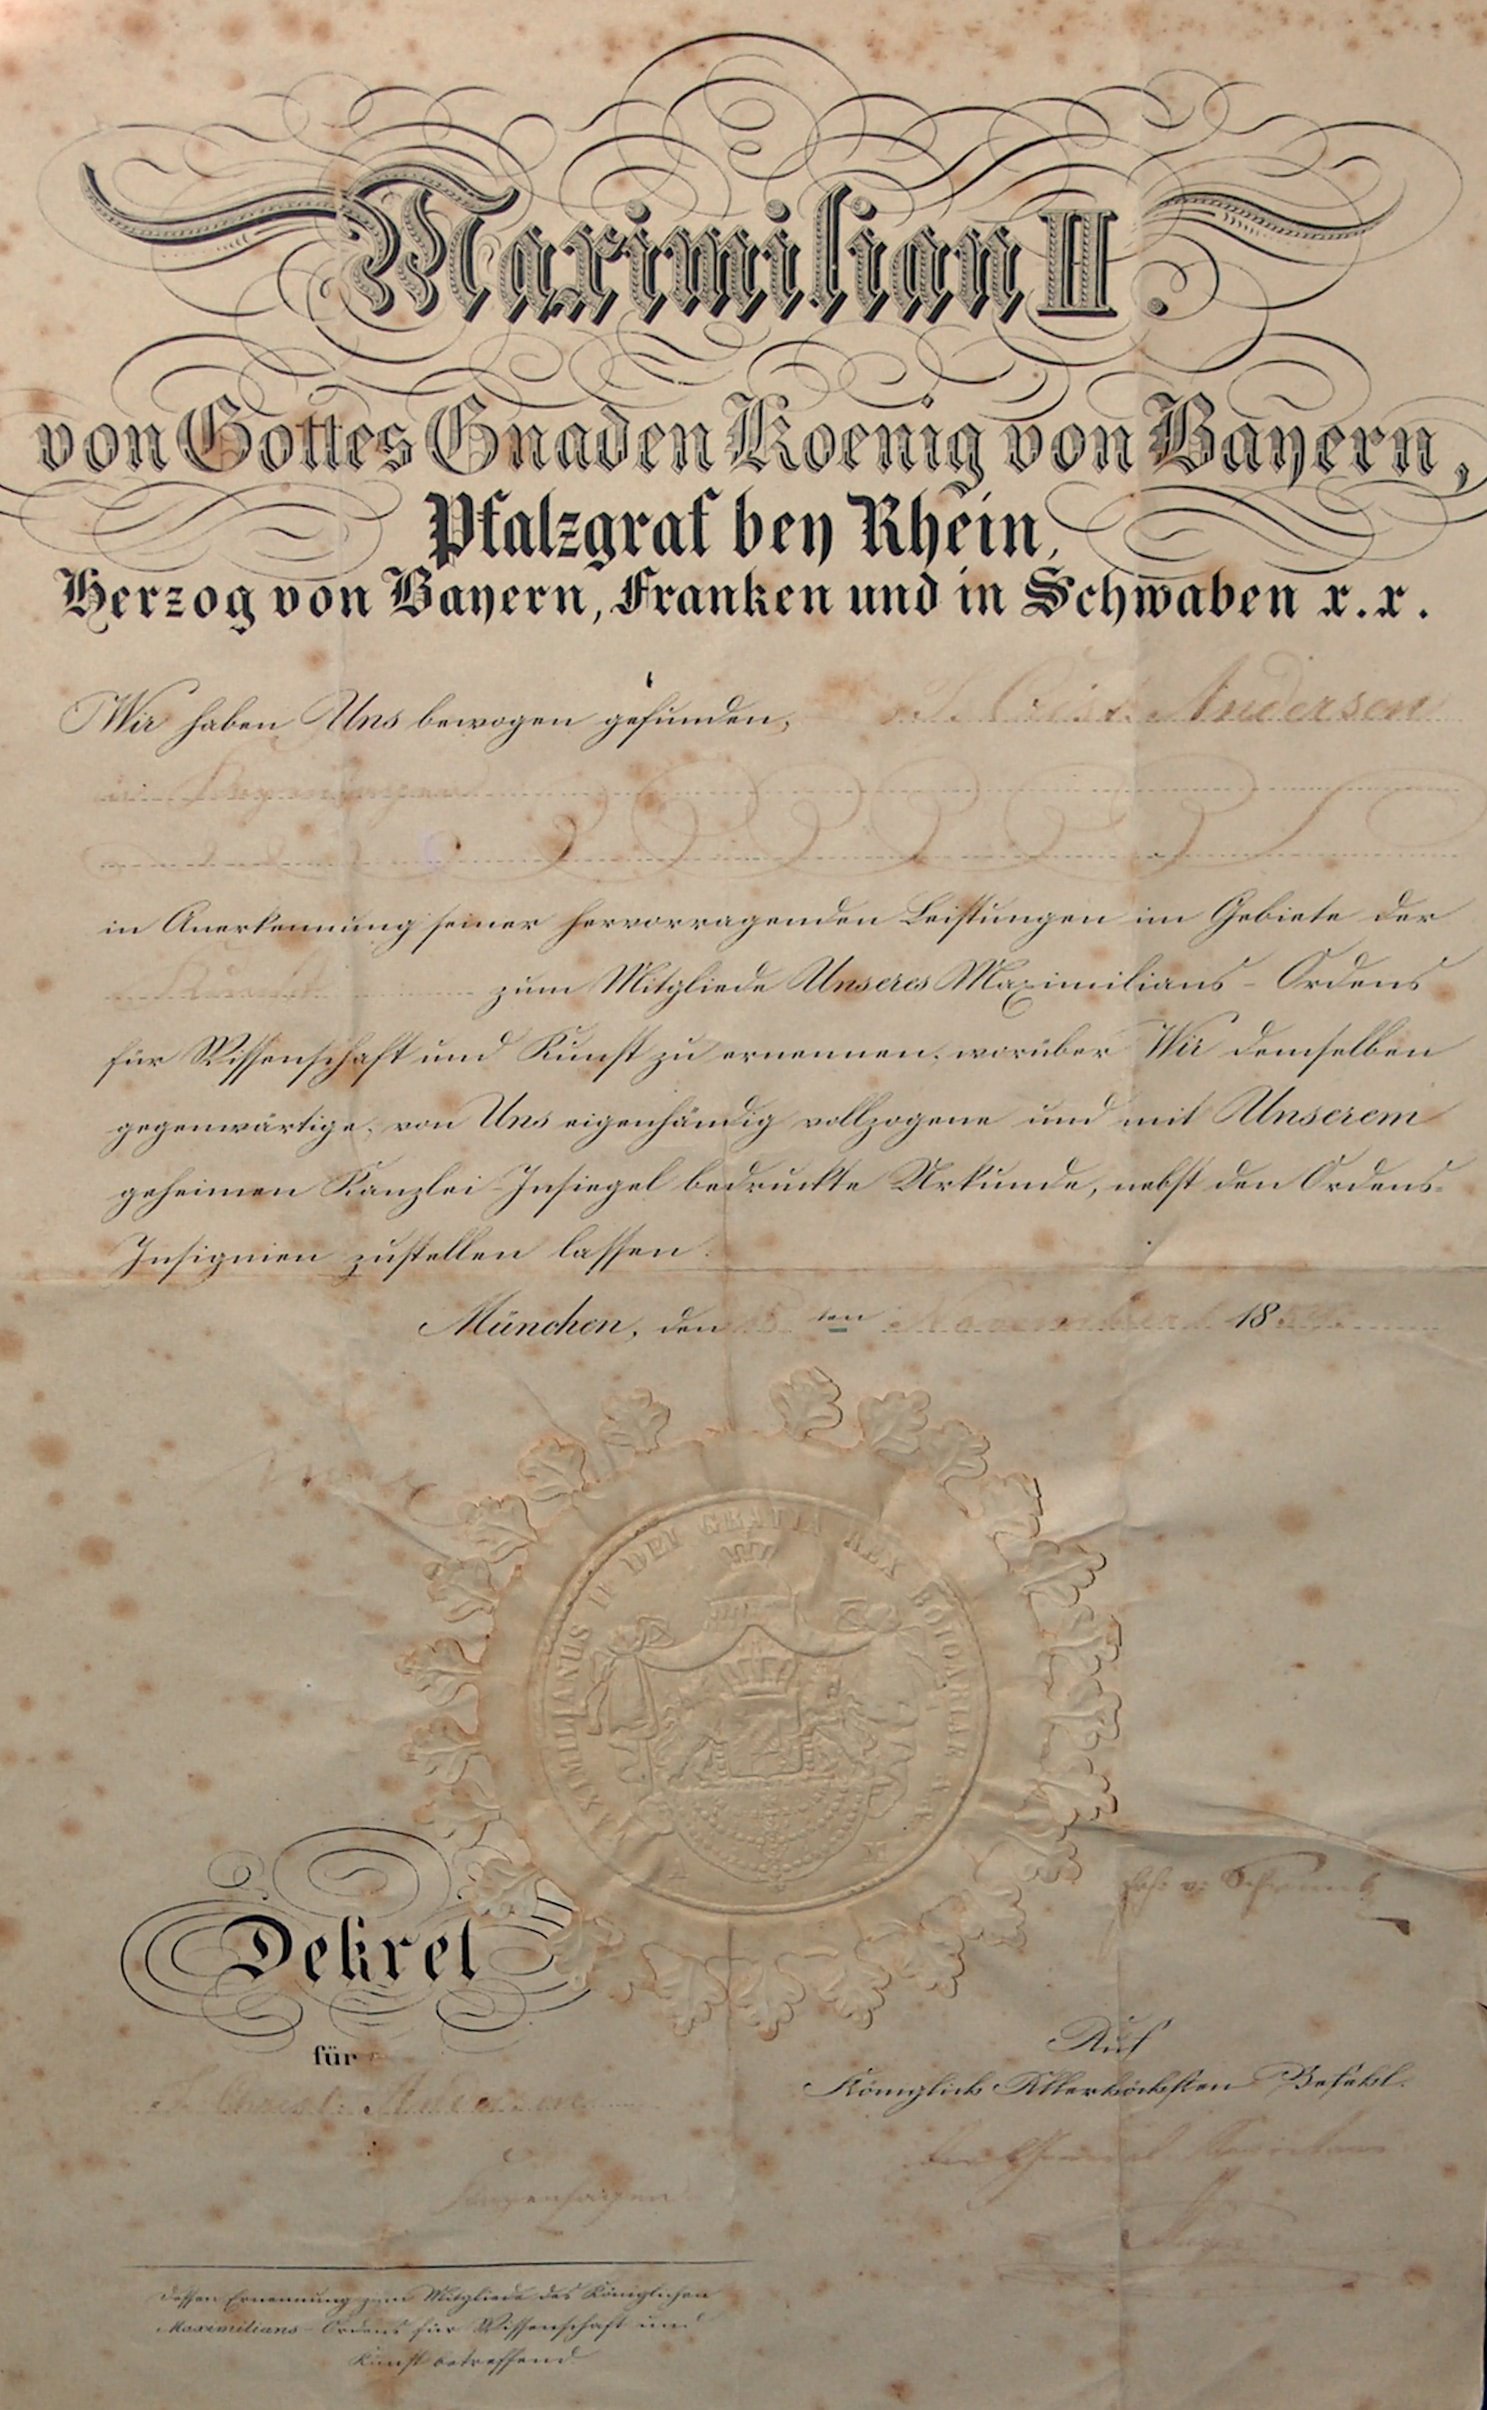 Maximilian II.
von Gottes Gnaden Koenig von Bayern,
Pfalzgraf bey Rhein,
Herzog von Bayern, Franken und in Schwaben x.x.
Wir haben Uns bewogen gefunden, Andersen
in
in Anerkennung seiner hervorragenden Leistungen im Gebiete der
Kunst zum Mitgliede Unseres Maximilians-Ordens
für Wissenschaft und Kunst zu ernennen, worüber Wir demselben
gegenwärtige, von Uns eigenhändig vollzogene und mit Unserem
geheimen Kanzlei-Insiegel bedruckte Urkunde, nebst den Ordens-
Insignien zustellen lassen.
München, den ten November 18
MAXIMILIANUS II DEI GRATIA REX BOIOARIAE
Dekret
für
Andersen
Kopenhagen
Auf
Königlich Allerhöchsten Befehl.
dessen Ernennung zum Mitgliede des Königlichen
Maximilians-Ordens für Wissenschaft und
Kunst betreffend